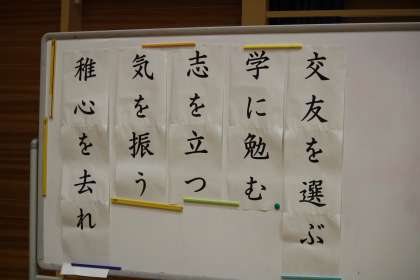 交友を選ぶ
学に勉む
志を立つ
気を振う
稚心を去れ